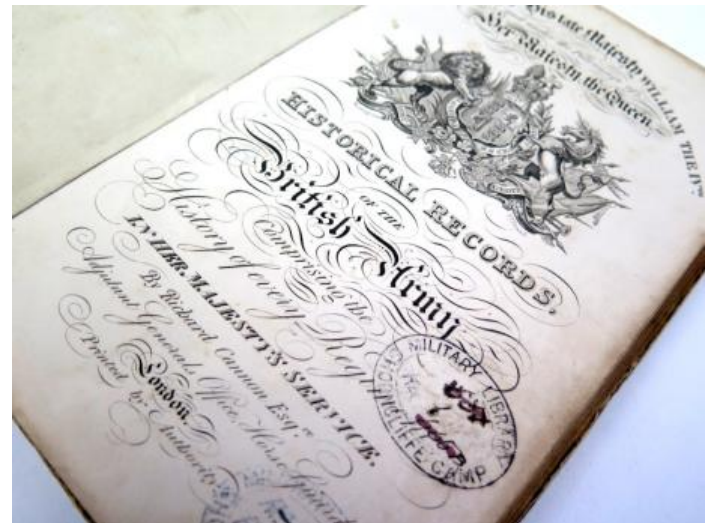 His late Majesty WILLIAM THE IVth
Her Majesty the Queen
HISTORICAL RECORDS,
OF THE
British Army
Comprising the
History of every Regt
IN HER MAJESTY'S SERVICE.
By Richard Cannon Esqre
Adjutant Generals Office, Horse Guards
London,
Printed by Authority
MILITARY LIBRARY
CAMP